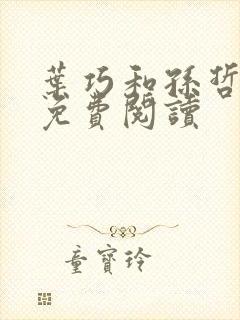 葉巧和孫哲
免費閱讀
童寶玲